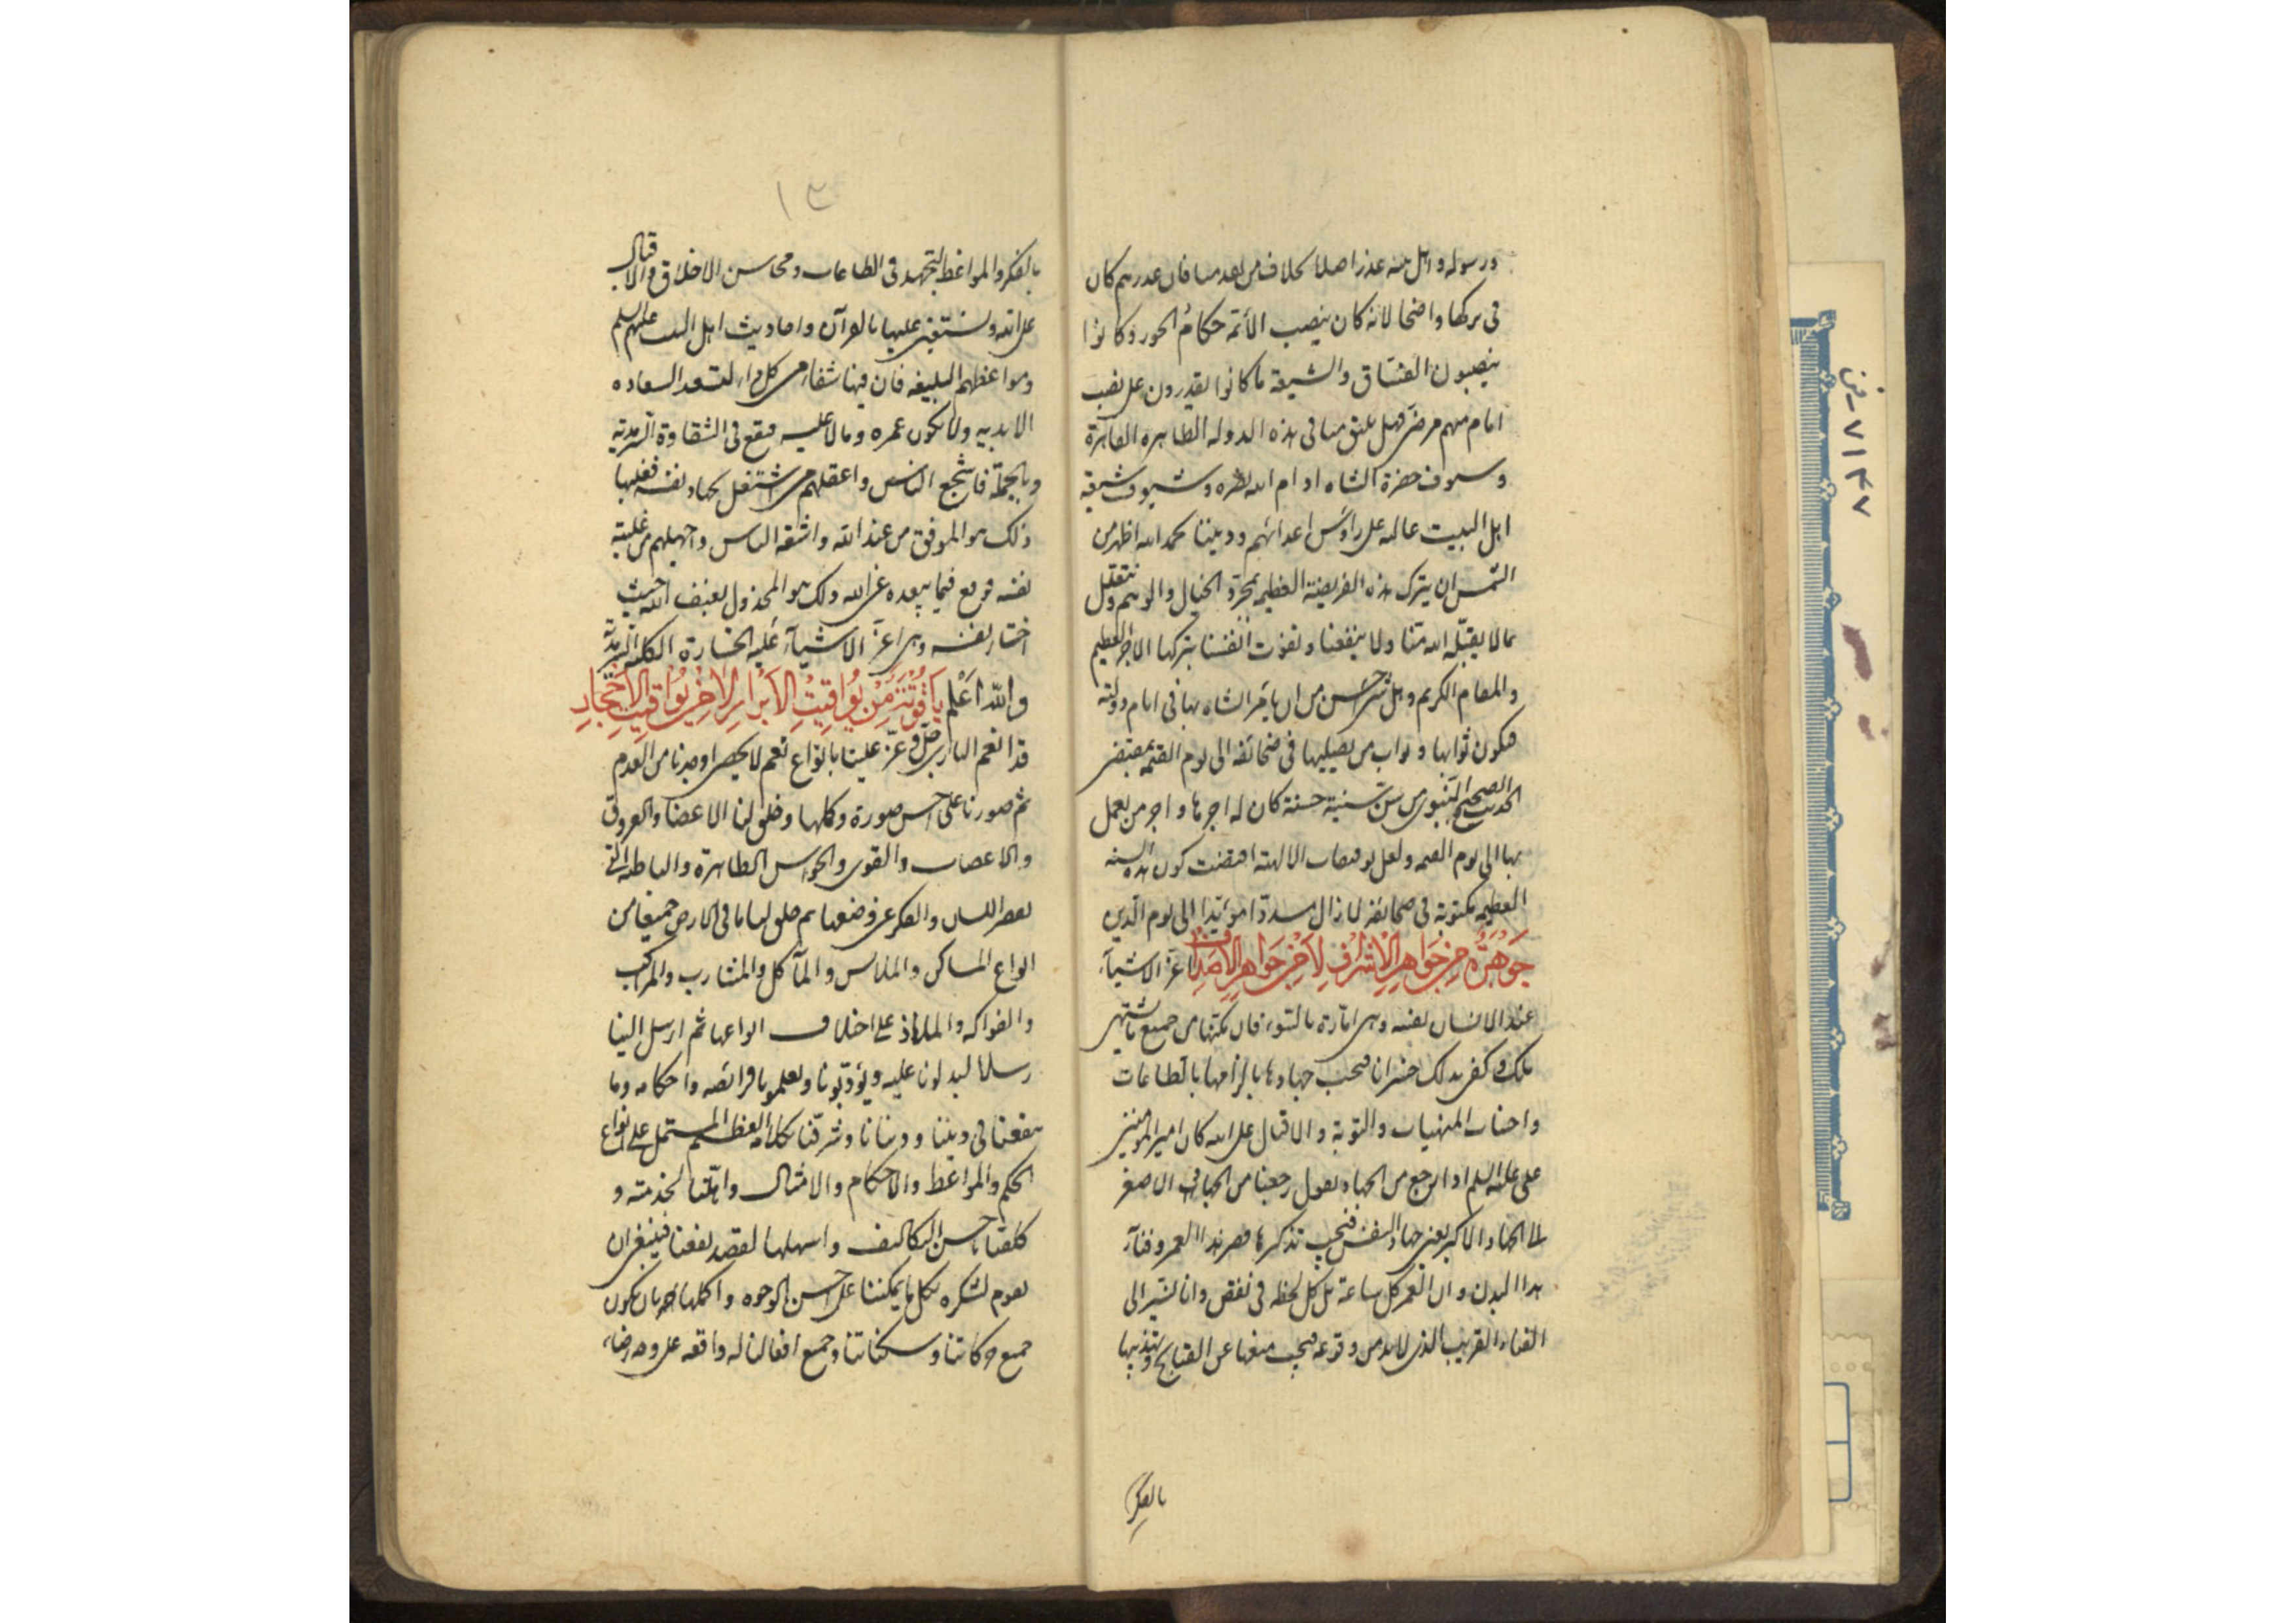 ورسوله واهل بيته عذرا اصلا بخلاف من بعد منا فان عذرهم كان
فى تركها واضحا لانه كان ينصب الأئمة حكام الجور وكانوا
ينصبون الفساق والشيعة ما كانوا يقدرون على نصب
امام منهم مرضى فهل يليق منا فى هذه الدولة الطاهرة القاهرة
وسيوف حضرة الشاه ادام الله نصره وسيوف شيعة
اهل البيت عالية على رؤس اعدائهم وديننا بحمد الله اظهر من
الشمس ان يترك هذه الفريضة العظيمة بمجرد الخيال والوهم ونتعلل
بما لا يقبله الله منا ولا ينفعنا ونفوت انفسنا بتركها الاجر العظيم
والمقام الكريم وهل شىء احسن من ان يأمر الشاه بها فى ايام دولته
فيكون ثوابها وثواب من يصليها فى صحائفه الى يوم القيمة بمقتضى
الحديث الصحيح النبوى من سن سنة حسنة كان له اجرها واجر من يعمل
بها الى يوم القيمة ولعل التوفيقات الالهية اقتضت كون هذه السنة
العظيمة مكتوبة فى صحائفه لا زال مسددا مؤيدا الى يوم الدين
جوهرة من جواهر الاشراف لا من جواهر الاصداف اعز الاشياء
عند الانسان نفسه وهى امارة بالسوء فان مكنها من جميع ما تشتهى
هلك وكفى بذلك خسرانا فيجب جهادها بالزامها بالطاعات
واجتناب المنهيات والتوبة والاقبال على الله كان امير المؤمنين
على عليه السلم اذا رجع من الجهاد يقول رجعنا من الجهاد الاصغر
الى الجهاد الاكبر يعنى جهاد النفس فيجب تذكيرها قصر هذا العمر وفناء
هذا البدن وان العمر كل ساعة بل كل لحظة فى نقص وانا نسير الى
الفناء القريب الذى لابد من وقوعه فيجب منعها عن القبايح وتهذيبها
بالفكر
١٣
بالفكر والمواعظ لتجتهد فى الطاعات ومحاسن الاخلاق والاقبال
على الله ونستعين عليها بالقرآن واحاديث اهل البيت عليهم السلم
ومواعظهم البليغة فان فيها شفاء من كل داء لتسعد السعاده
الابدية ولا يكون عمره وبالا عليه فيقع فى الشقاوة السرمدية
وبالجملة فاشجع الناس واعقلهم من اشتغل بجهاد نفسه فغلبها
ذلك هو الموفق من عند الله واشقى الناس واجهلهم من غلبته
نفسه فوقع فيما يبعده عن الله ذلك هو المخذول بغضب الله حيث
اختار لنفسه وهى اعز الاشياء عليه الخسارة الكلية السرمدية
والله اعلم ياقوتة من يواقيت الابرار لا من يواقيت الاحجار
قد انعم البارى جل وعز علينا بانواع نعم لا تحصى اوجدنا من العدم
ثم صورنا على احسن صورة وكملها وخلق لنا الاعضا والعروق
والاعصاب والقوى والحواس الظاهرة والباطنة التى
يقصر اللسان والفكر عن وصفها ثم خلق لنا ما فى الارض جميعا من
انواع المساكن والملابس والمآكل والمشارب والمراكب
والفواكه والملاذ على اختلاف انواعها ثم ارسل الينا
رسلا ليدلونا عليه ويؤدبونا ويعلمونا فرائضه واحكامه وما
ينفعنا فى ديننا ودنيانا وشرفنا بكلامه العظيم المشتمل على انواع
الحكم والمواعظ والاحكام والامثال واهلنا لخدمته و
كلفنا باحسن التكاليف واسهلها لقصد نفعنا فينبغى ان
نقوم لشكره بكل ما يمكننا على احسن الوجوه واكملها بان يكون
جميع حركاتنا وسكناتنا وجميع افعالنا له واقعة على وجه رضاه
٧١٤٧